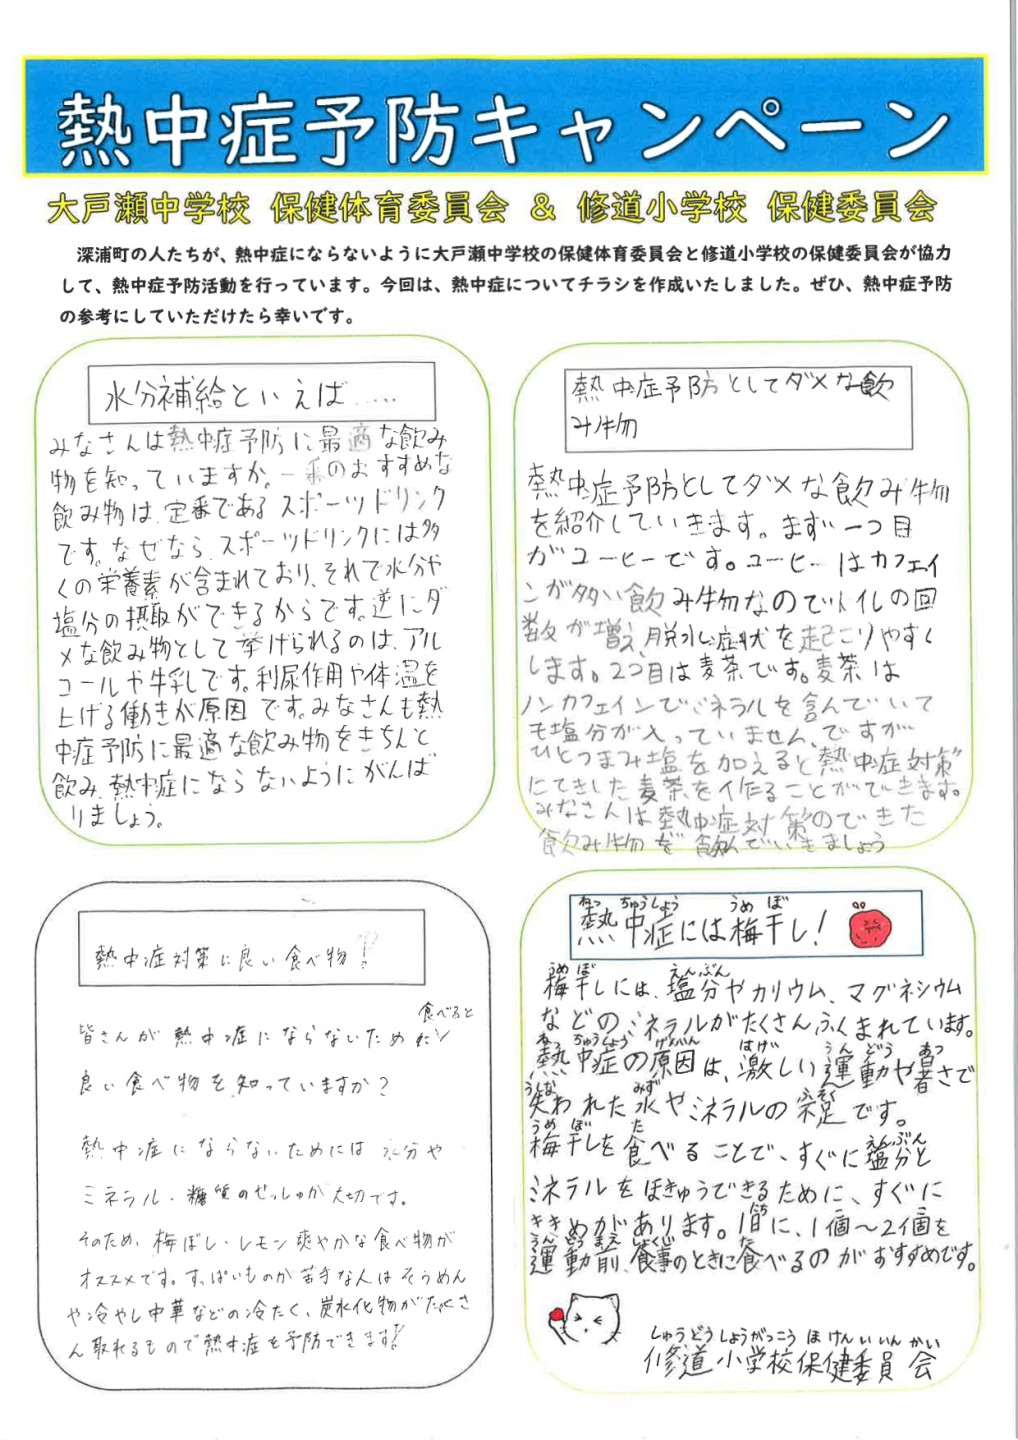 熱中症予防キャンペーン
大戸瀬中学校 保健体育委員会 & 修道小学校 保健委員会
深浦町の人たちが、熱中症にならないように大戸瀬中学校の保健体育委員会と修道小学校の保健委員会が協力
して、熱中症予防活動を行っています。今回は、熱中症についてチラシを作成いたしました。ぜひ、熱中症予防
の参考にしていただけたら幸いです。
水分補給といえば.....
みなさんは熱中症予防に最適な飲み
物を知っていますか。一番のおすすめな
飲み物は、定番であるスポーツドリンク
です。なぜなら、スポーツドリンクには多
くの栄養素が含まれており、それで水分や
塩分の摂取ができるからです。逆にダ
メな飲み物として挙げられるのは、アル
コールや牛乳です。利尿作用や体温を
上げる働きが原因です。みなさんも熱
中症予防に最適な飲み物をきちんと
飲み、熱中症にならないようにがんば
りましょう。
熱中症予防としてダメな飲
み物
熱中症予防としてダメな飲み物
を紹介していきます。まず一つ目
がコーヒーです。コーヒーはカフェイ
ンが多い飲み物なのでトイレの回
数が増え、脱水症状を起こりやすく
します。2つ目は麦茶です。麦茶は
ノンカフェインでミネラルを含んでいて
も塩分が入っていません。ですが
ひとつまみ塩を加えると熱中症対策
にてきした麦茶を作ることができます。
みなさんは熱中症対策のできた
飲み物を飲んでいきましょう
熱中症対策に良い食べ物!!
皆さんが熱中症にならないために食べると
良い食べ物を知っていますか?
熱中症にならないためには水分や
ミネラル、糖質のせっしゅが大切です。
そのため、梅ぼし・レモン爽やかな食べ物が
オススメです。すっぱいものが苦手な人はそうめん
や冷やし中華などの冷たく、炭水化物がたくさ
ん取れるもので熱中症を予防できます!!
ねっ ちゅうしょう うめ ぼ
熱中症には梅干し!
うめ ぼ えんぶん
梅干しには、塩分やカリウム、マグネシウム
などのミネラルがたくさんふくまれています。
ねっ ちゅうしょう げんいん はげ うん どう あつ
熱中症の原因は、激しい運動や暑さで
うしな みず ふそく
失われた水やミネラルの不足です。
うめ ぼ た えんぶん
梅干しを食べることで、すぐに塩分と
ミネラルをほきゅうできるために、すぐに
にち こ こ
ききめがあります。1日に、1個～2個を
うんどう まえ しょくじ た
運動前、食事のときに食べるのがおすすめです。
しゅうどう しょうがっこう ほ けん い いん かい
修道小学校保健委員会